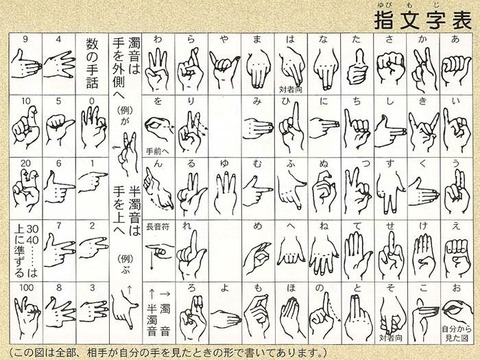 ゆび も じ
指文字表
あ
い
う
え
お
自分から
見た図
か
き
く
け
こ
さ
し
す
せ
そ
対者向
た
ち
つ
て
と
な
に
ぬ
ね
の
は
対者向
ひ
ふ
へ
ほ
ま
み
む
め
も
や
ゆ
よ
ら
り
る
れ
ろ
わ
を
手前へ
ん
長音符
↓
→濁音
↑半濁音
濁音は
手を外側へ
(例)が
半濁音は
手を上へ
(例)ぷ
数の手話
0
1
2
3
4
5
6
7
8
9
10
20
30
40……は
上に準ずる
100
(この図は全部、相手が自分の手を見たときの形で書いてあります。)